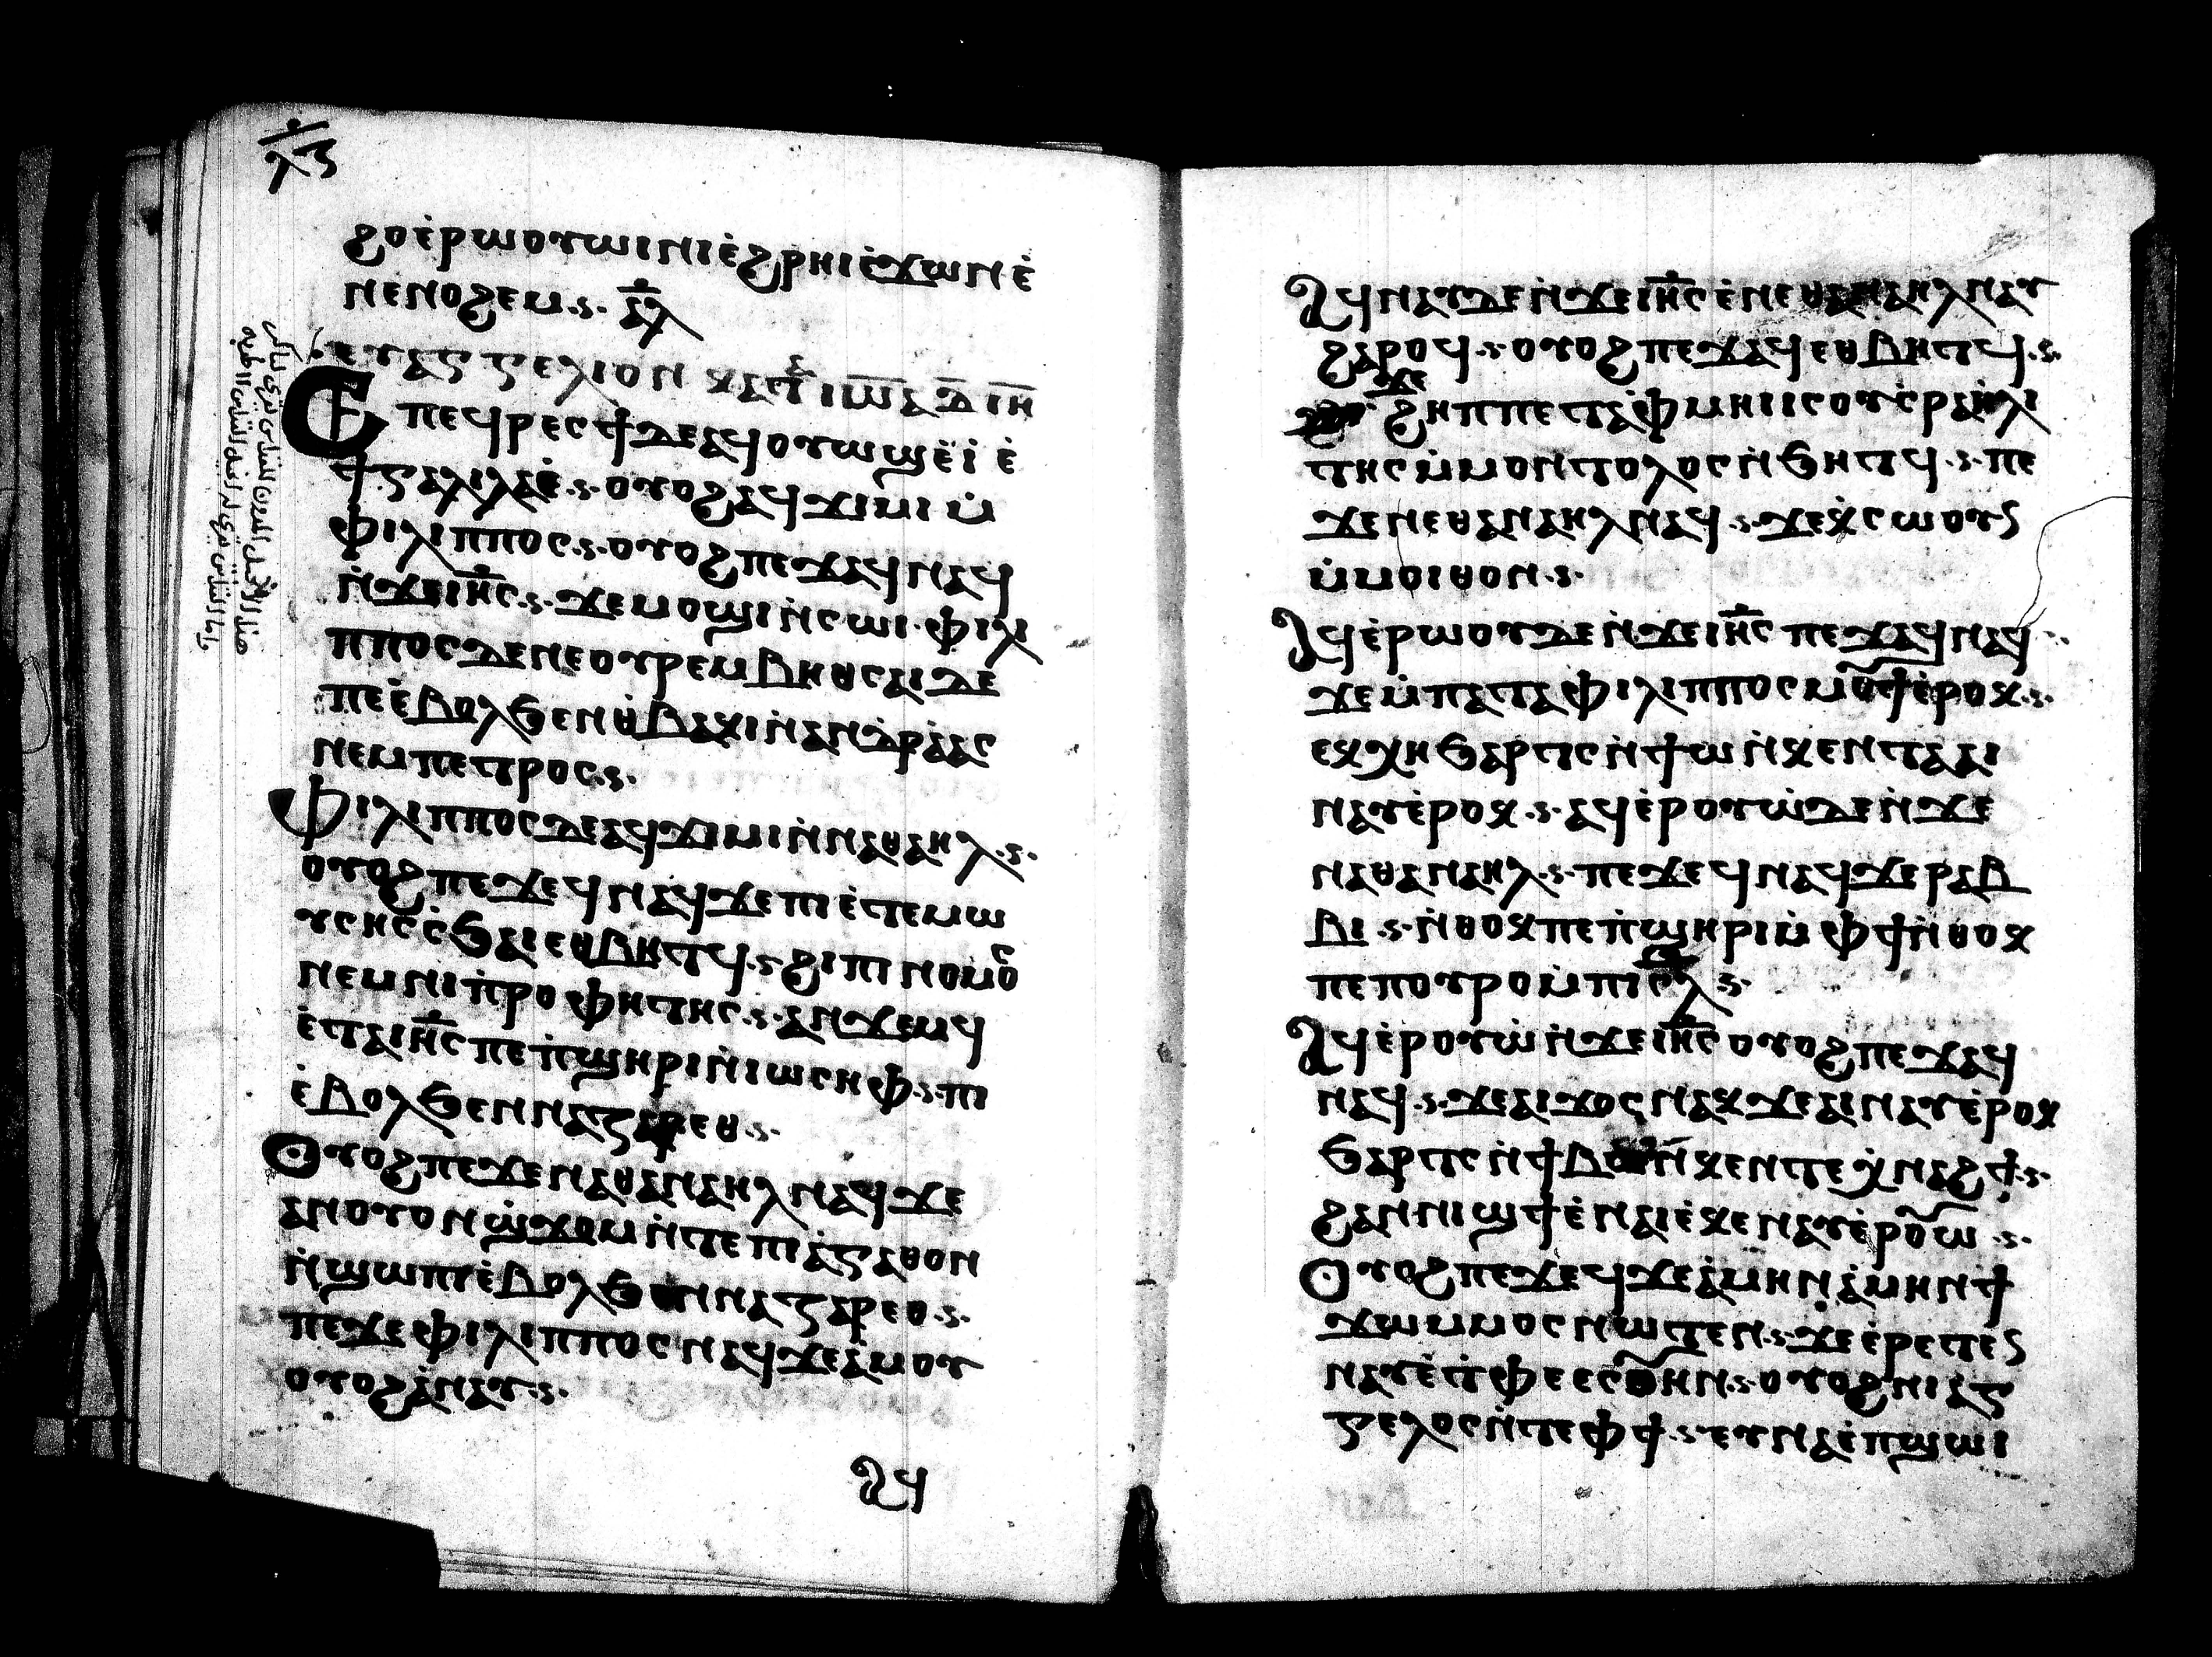 ⲗⲋ
ϩⲟⲉ̇ⲣⲱⲟⲩⲱⲓⲛⲓⲉ̇ϩⲣⲏⲓⲉ̇ϫⲱⲛⲉ̇
ⲛⲉⲛⲟϩⲉⲙ.ⲋ. ⲁ̅ⲗ
ⲉⲩⲁⲅⲅⲉⲗⲓⲟⲛ ⲕⲁⲧⲁ ⲓⲱ̅ⲁ
Ⲉⲡⲉϥⲣⲉⲥϯⲇⲉⲁϥⲟⲩⲱϣⲉ̇ⲓ̇ ⲉ̇
ϯⲅⲁⲗⲓⲗⲁⲉ̇.ⲋ.ⲟⲩⲟϩⲁϥϫⲓⲙⲓ ⲙ̇
ⲫⲓⲗⲓⲡⲡⲟⲥ.ⲋ.ⲟⲩⲟϩⲡⲉϫⲁϥⲛⲁϥ
ⲛ̇ϫⲉⲓⲏ̅ⲥ.ⲋ.ϫⲉⲙⲟϣⲓⲛ̇ⲥⲱⲓ.ⲫⲓⲗⲓ
ⲡⲡⲟⲥⲇⲉⲛⲉⲟⲩⲣⲉⲙⲃⲏⲑⲥⲁⲓⲇⲉ
ⲡⲉⲉ̇ⲃⲟⲗϧⲉⲛⲑ̇ⲃⲁⲕⲓⲛ̇ⲁⲛⲇⲣⲉ̇ⲁⲥ
ⲛⲉⲙⲡⲉⲧⲣⲟⲥ.ⲋ.
Ⲫⲓⲗⲓⲡⲡⲟⲥⲇⲉⲁϥϫⲓⲙⲓⲛ̇ⲛⲁⲑⲁⲏⲗ.ⲋ.
ⲟⲩⲟϩⲡⲉϫⲉϥⲛⲁϥϫⲉⲡⲓⲉ̇ⲧⲉⲙⲱ
ⲩⲥⲏⲥⲥ̇ϧⲁⲓⲉⲑⲃⲏⲧϥ.ⲋ.ϩⲓⲡⲓⲛⲟⲙⲟⲥ
ⲛⲉⲙⲛⲓⲡ̇ⲣⲟⲫⲏⲧⲏⲥ.ⲋ.ⲁⲛϫⲉⲙϥ
ⲉ̇ⲧⲁⲓⲏ̅ⲥⲡⲉⲡ̇ϣⲏⲣⲓⲛ̇ⲓⲱⲥⲏⲫ.ⲋ.ⲡⲓ
ⲉ̇ⲃⲟⲗϧⲉⲛⲛⲁⲍⲁⲣⲉⲑ.ⲋ.
Ⲟⲩⲟϩⲡⲉϫⲉⲛⲁⲑⲁⲛⲁⲏⲗⲛⲁϥϫⲉ
ⲁⲛⲟⲩⲟⲛϣ̇ϫⲟⲙⲛ̇ⲧⲉⲡⲓⲁ̇ⲅⲁⲑⲟⲛ
ⲛ̇ϣⲱⲡⲓⲉ̇ⲃⲟⲗϧⲉⲛⲛⲁⲍⲁⲣⲉⲑ.ⲋ.
ⲡⲉϫⲉⲫⲓⲗⲓⲡⲡⲟⲥⲛⲁϥϫⲉⲁ̇ⲙⲟⲩ
ⲟⲩⲟϩⲁ̇ⲛⲁⲩ.ⲋ.
ⲁϥ
Ⲁϥⲛⲁⲩⲇⲉⲛ̇ϫⲉⲓⲏ̅ⲥⲉ̇ⲛⲉⲑⲁⲛⲁⲏⲗⲛⲁⲩ
ϩⲁⲣⲟϥ.ⲋ.ⲟⲩⲟϩⲡⲉϫⲁϥⲉⲑⲃⲏⲧϥ.ⲋ.
ϫⲉ
ϩⲏⲡⲡⲉⲧⲁⲫⲙⲏⲓⲓⲥⲟⲩⲥ̇ⲣⲁⲏ̇ⲗⲓ
ⲧⲏⲥⲙ̇ⲙⲟⲛⲧⲟⲗⲟⲥⲛ̇ϧⲏⲧϥ.ⲋ.ⲡⲉ
ϫⲉⲛⲉⲑⲁⲛⲁⲏⲗⲛⲁϥ.ⲋ.ϫⲉⲭ̇ⲥⲱⲟⲩⲛ
ⲙ̇ⲙⲟⲓⲑⲟⲛ.ⲋ.
Ⲁϥⲉ̇ⲣⲱⲟⲩⲇⲉⲛ̇ϫⲉⲓⲏ̅ⲥ ⲡⲉϫⲁϥⲛⲁϥ
ϫⲉⲙ̇ⲡⲁⲧⲁⲫⲓⲗⲓⲡⲡⲟⲥⲙⲟⲩϯⲉ̇ⲣⲟⲕ.ⲋ.
ⲉⲕⲭⲏϧⲁⲣⲧⲥⲛ̇ϯⲱⲛ̇ⲕⲉⲛⲧⲁⲁⲓ
ⲛⲁⲩⲉ̇ⲣⲟⲕ.ⲋ.ⲁϥⲉ̇ⲣⲟⲩⲱ̇ⲇⲉⲛ̇ϫⲉ
ⲛⲁⲑⲁⲛⲁⲏⲗ.ⲋ.ⲡⲉϫⲉϥⲛⲁϥϫⲉⲣⲁⲃ
ⲃⲓ.ⲋ.ⲛ̇ⲑⲟⲕⲡⲉⲡ̇ϣⲏⲣⲓⲙ̇ⲫϯⲛ̇ⲑⲟⲕ
ⲡⲉⲡⲟⲩⲣⲟⲙ̇ⲡⲓⲥ̅ⲗ.ⲋ.
Ⲁϥⲉ̇ⲣⲟⲩⲱ̇ⲛ̇ϫⲉⲓⲏ̅ⲥⲟⲩⲟϩⲡⲉϫⲁϥ
ⲛⲁϥ.ⲋ.ϫⲉⲁⲓϫⲟⲥⲛⲁⲕϫⲉⲁⲓⲛⲁⲩⲉ̇ⲣⲟⲕ
ϧⲁⲣⲧⲥⲛ̇ϯⲃⲱⲛ̇ⲕⲉⲛⲧⲉⲭ̇ⲛⲁϩϯ.ⲋ.
ϩⲁⲛⲛⲓϣϯⲉ̇ⲛⲁⲓⲉ̇ⲕⲉⲛⲁⲩⲉ̇ⲣⲟ̅ⲱ.ⲋ.
Ⲟⲩⲟϩⲡⲉϫⲉϥϫⲉⲁ̇ⲙⲏⲛⲁ̇ⲙⲏⲛϯ
ϫⲱⲙⲙⲟⲥⲛⲱⲧⲉⲛ.ⲋ.ϫⲉⲉ̇ⲣⲉⲧⲉⲛ
ⲛⲁⲩⲉ̇ⲧ̇ⲫⲉⲉⲥⲟ̅ⲏⲛ.ⲋ.ⲟⲩⲟϩⲛⲓⲁⲅ
ⲅⲉⲗⲟⲥⲛ̇ⲧⲉⲫϯ.ⲋ.ⲉⲩⲛⲁⲉ̇ⲡϣⲱⲓ